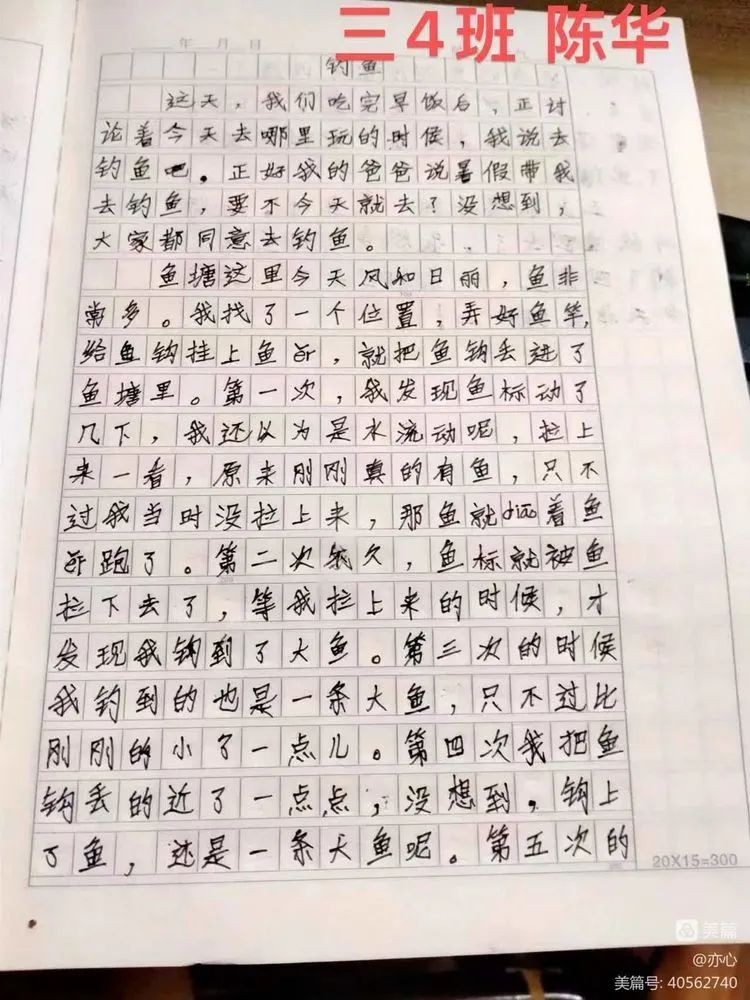 三4班 陈华
年 月 日
钓鱼
这天，我们吃完早饭后，正讨
论着今天去哪里玩的时候，我说去
钓鱼吧。正好我的爸爸说暑假带我
去钓鱼，要不今天就去？没想到，
大家都同意去钓鱼。
鱼塘这里今天风和日丽，鱼非
常多。我找了一个位置，弄好鱼竿，
给鱼钩挂上鱼ěr，就把鱼钩丢进了
鱼塘里。第一次，我发现鱼标动了
几下，我还以为是水流动呢，拉上
来一看，原来刚刚真的有鱼，只不
过我当时没拉上来，那鱼就diāo着鱼
ěr跑了。第二次我久，鱼标就被鱼
拉下去了，等我拉上来的时候，才
发现我钩到了大鱼。第三次的时候
我钓到的也是一条大鱼，只不过比
刚刚的小了一点儿。第四次我把鱼
钩丢的近了一点点，没想到，钩上
了鱼，还是一条大鱼呢。第五次的
20X15=300
美篇
@亦心
美篇号: 40562740